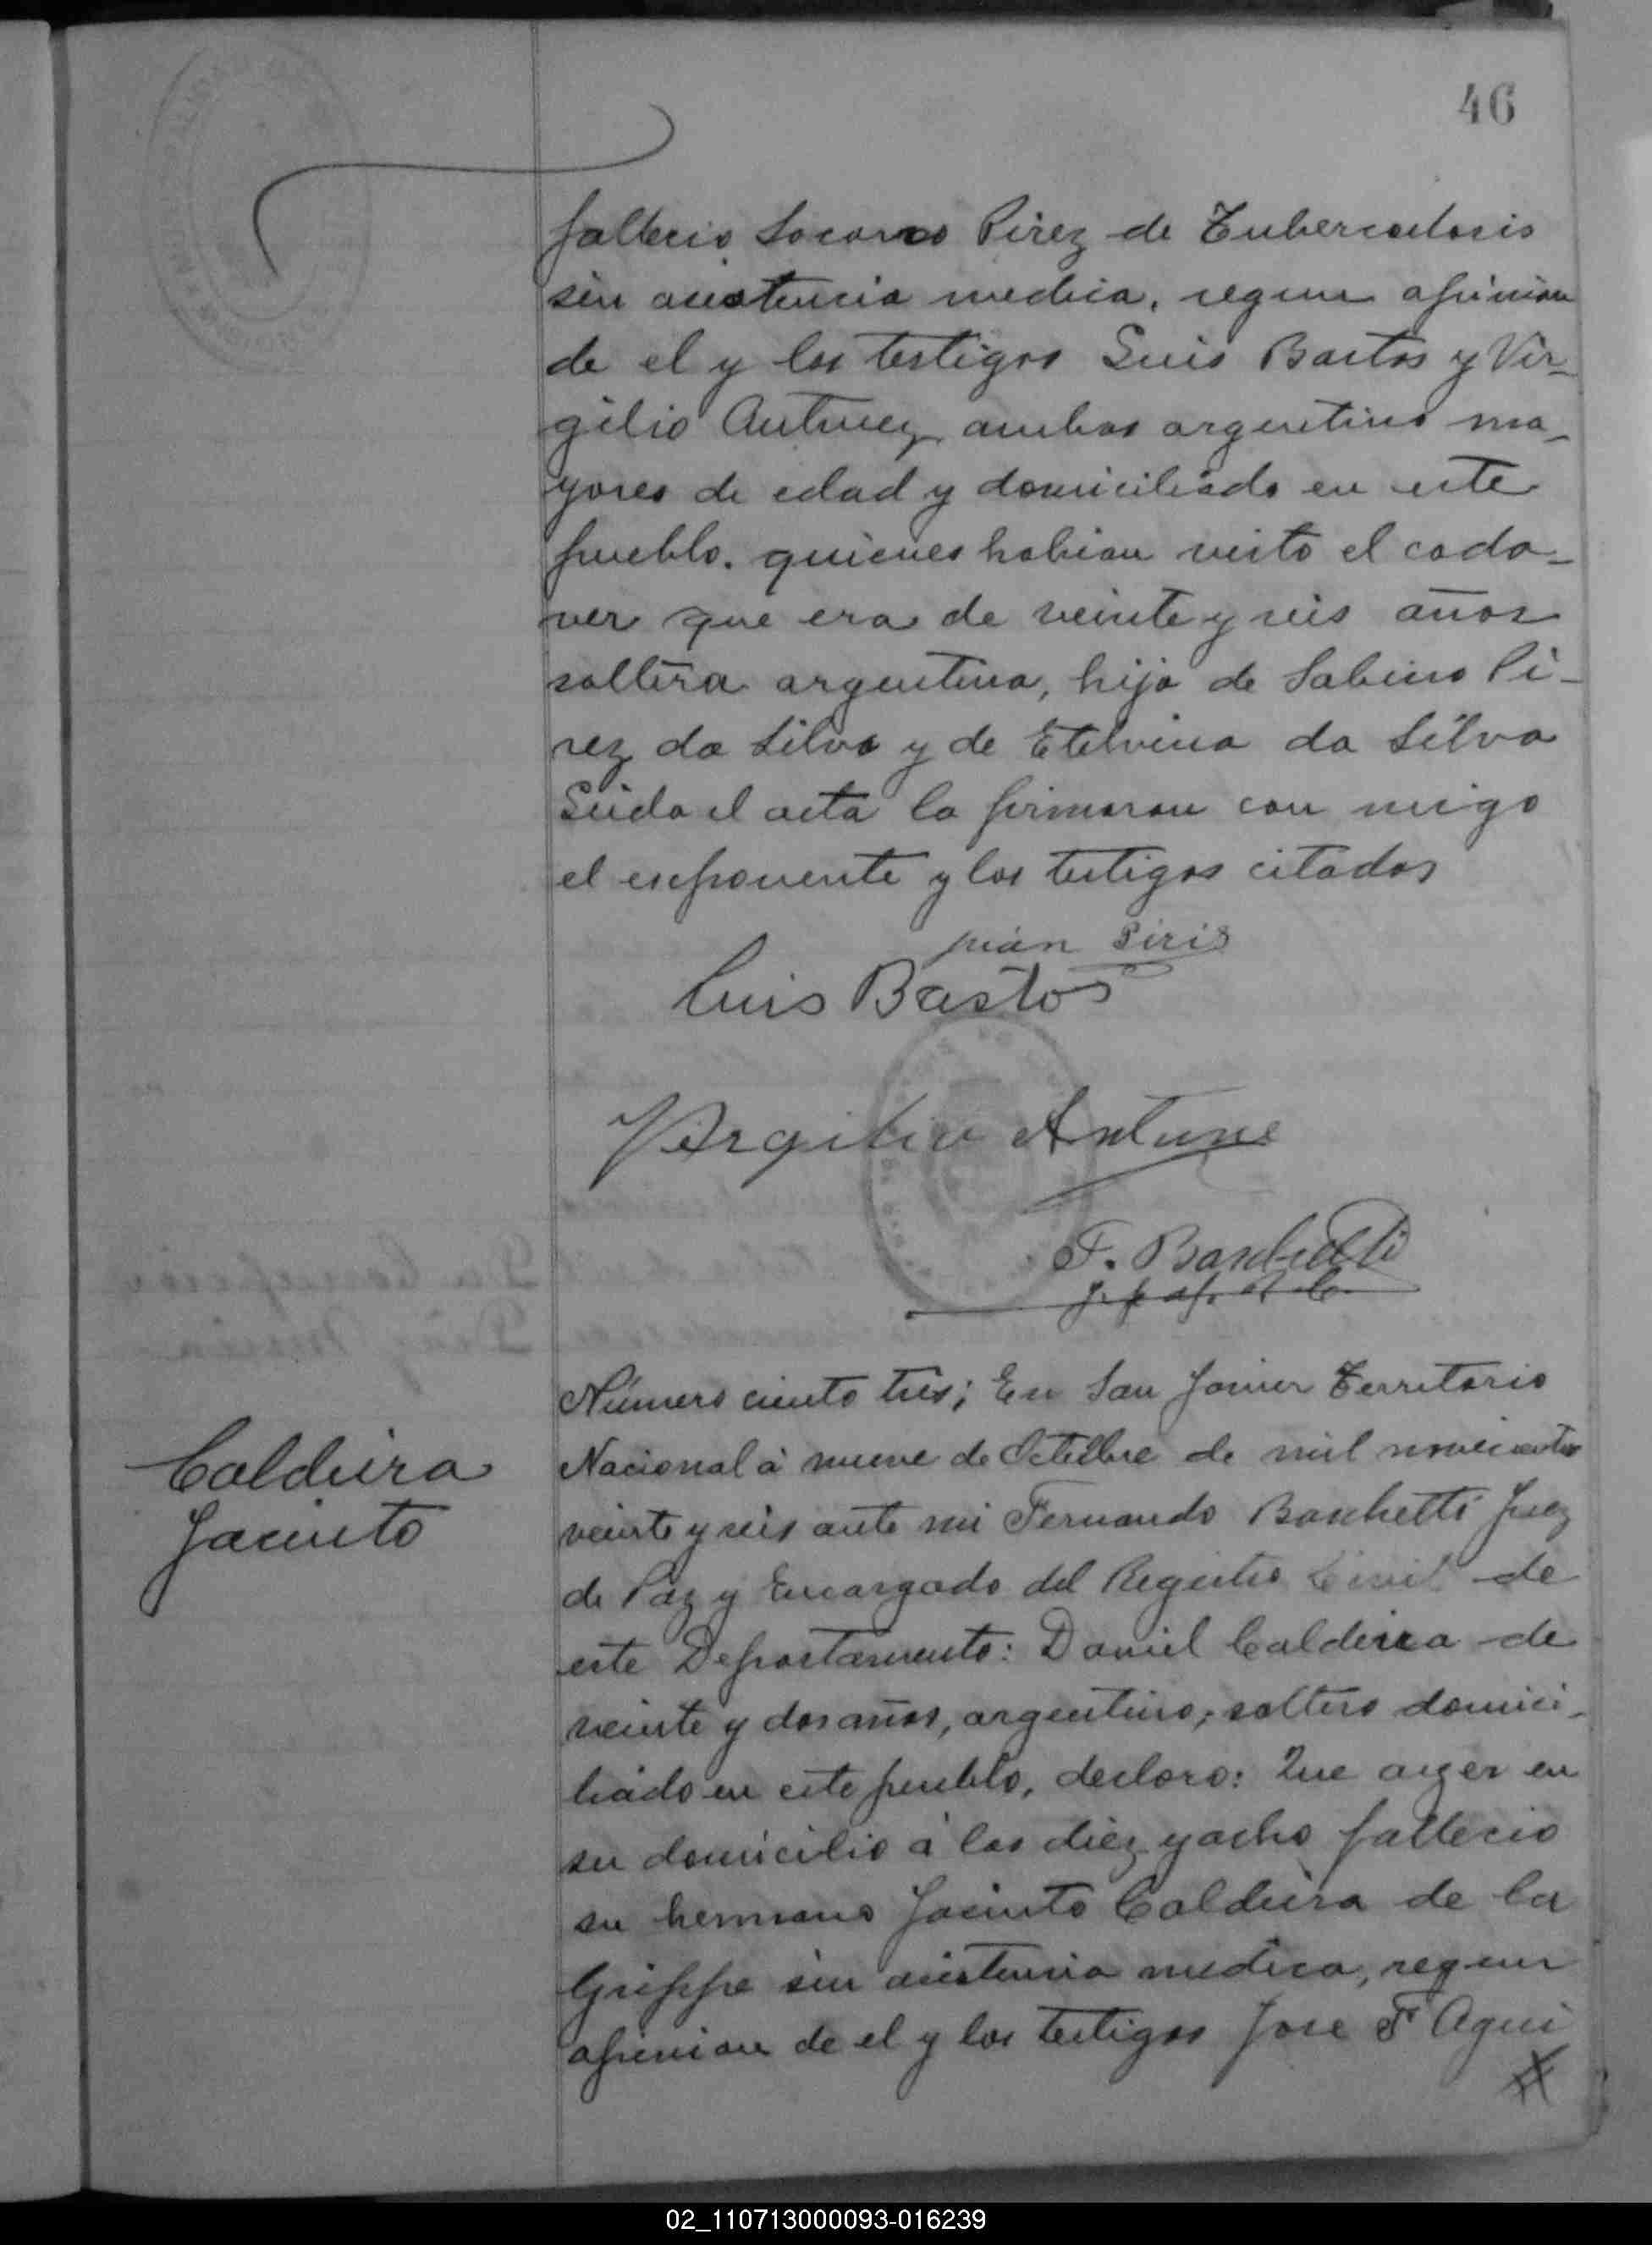 46
fallecio Socorro Pirez de Tuberculosis
sin asistencia medica, segun opinion
de el y los testigos Luis Bastos y Vir-
gilio Antunez ambos argentinos ma-
yores de edad y domiciliado en este
pueblo. quienes habian visto el cada-
ver que era de veinte y seis años
soltera argentina, hija de Sabino Pi-
rez da Silva y de Etelvina da Silva
Leida el acta la firmaron con migo
el exponente y los testigos citados
juan Piris
Luis Bastos
Virgilio Antune
F. Banchetti
Caldeira
Jacinto
Número ciento tres; En San Javier Territorio
Nacional á nueve de Octubre de mil novecientos
veinte y seis ante mi Fernando Banchetti Juez
de Paz y Encargado del Registro Civil de
este Departamento: Daniel Caldeira de
veinte y dos años, argentino, soltero domici-
liado en este pueblo, declaro: Que ayer en
su domicilio á las diez y ocho fallecio
su hermano Jacinto Caldeira de la
Grippe sin asistencia medica, segun
opinion de el y los testigos Jose F Agui
02_110713000093-016239